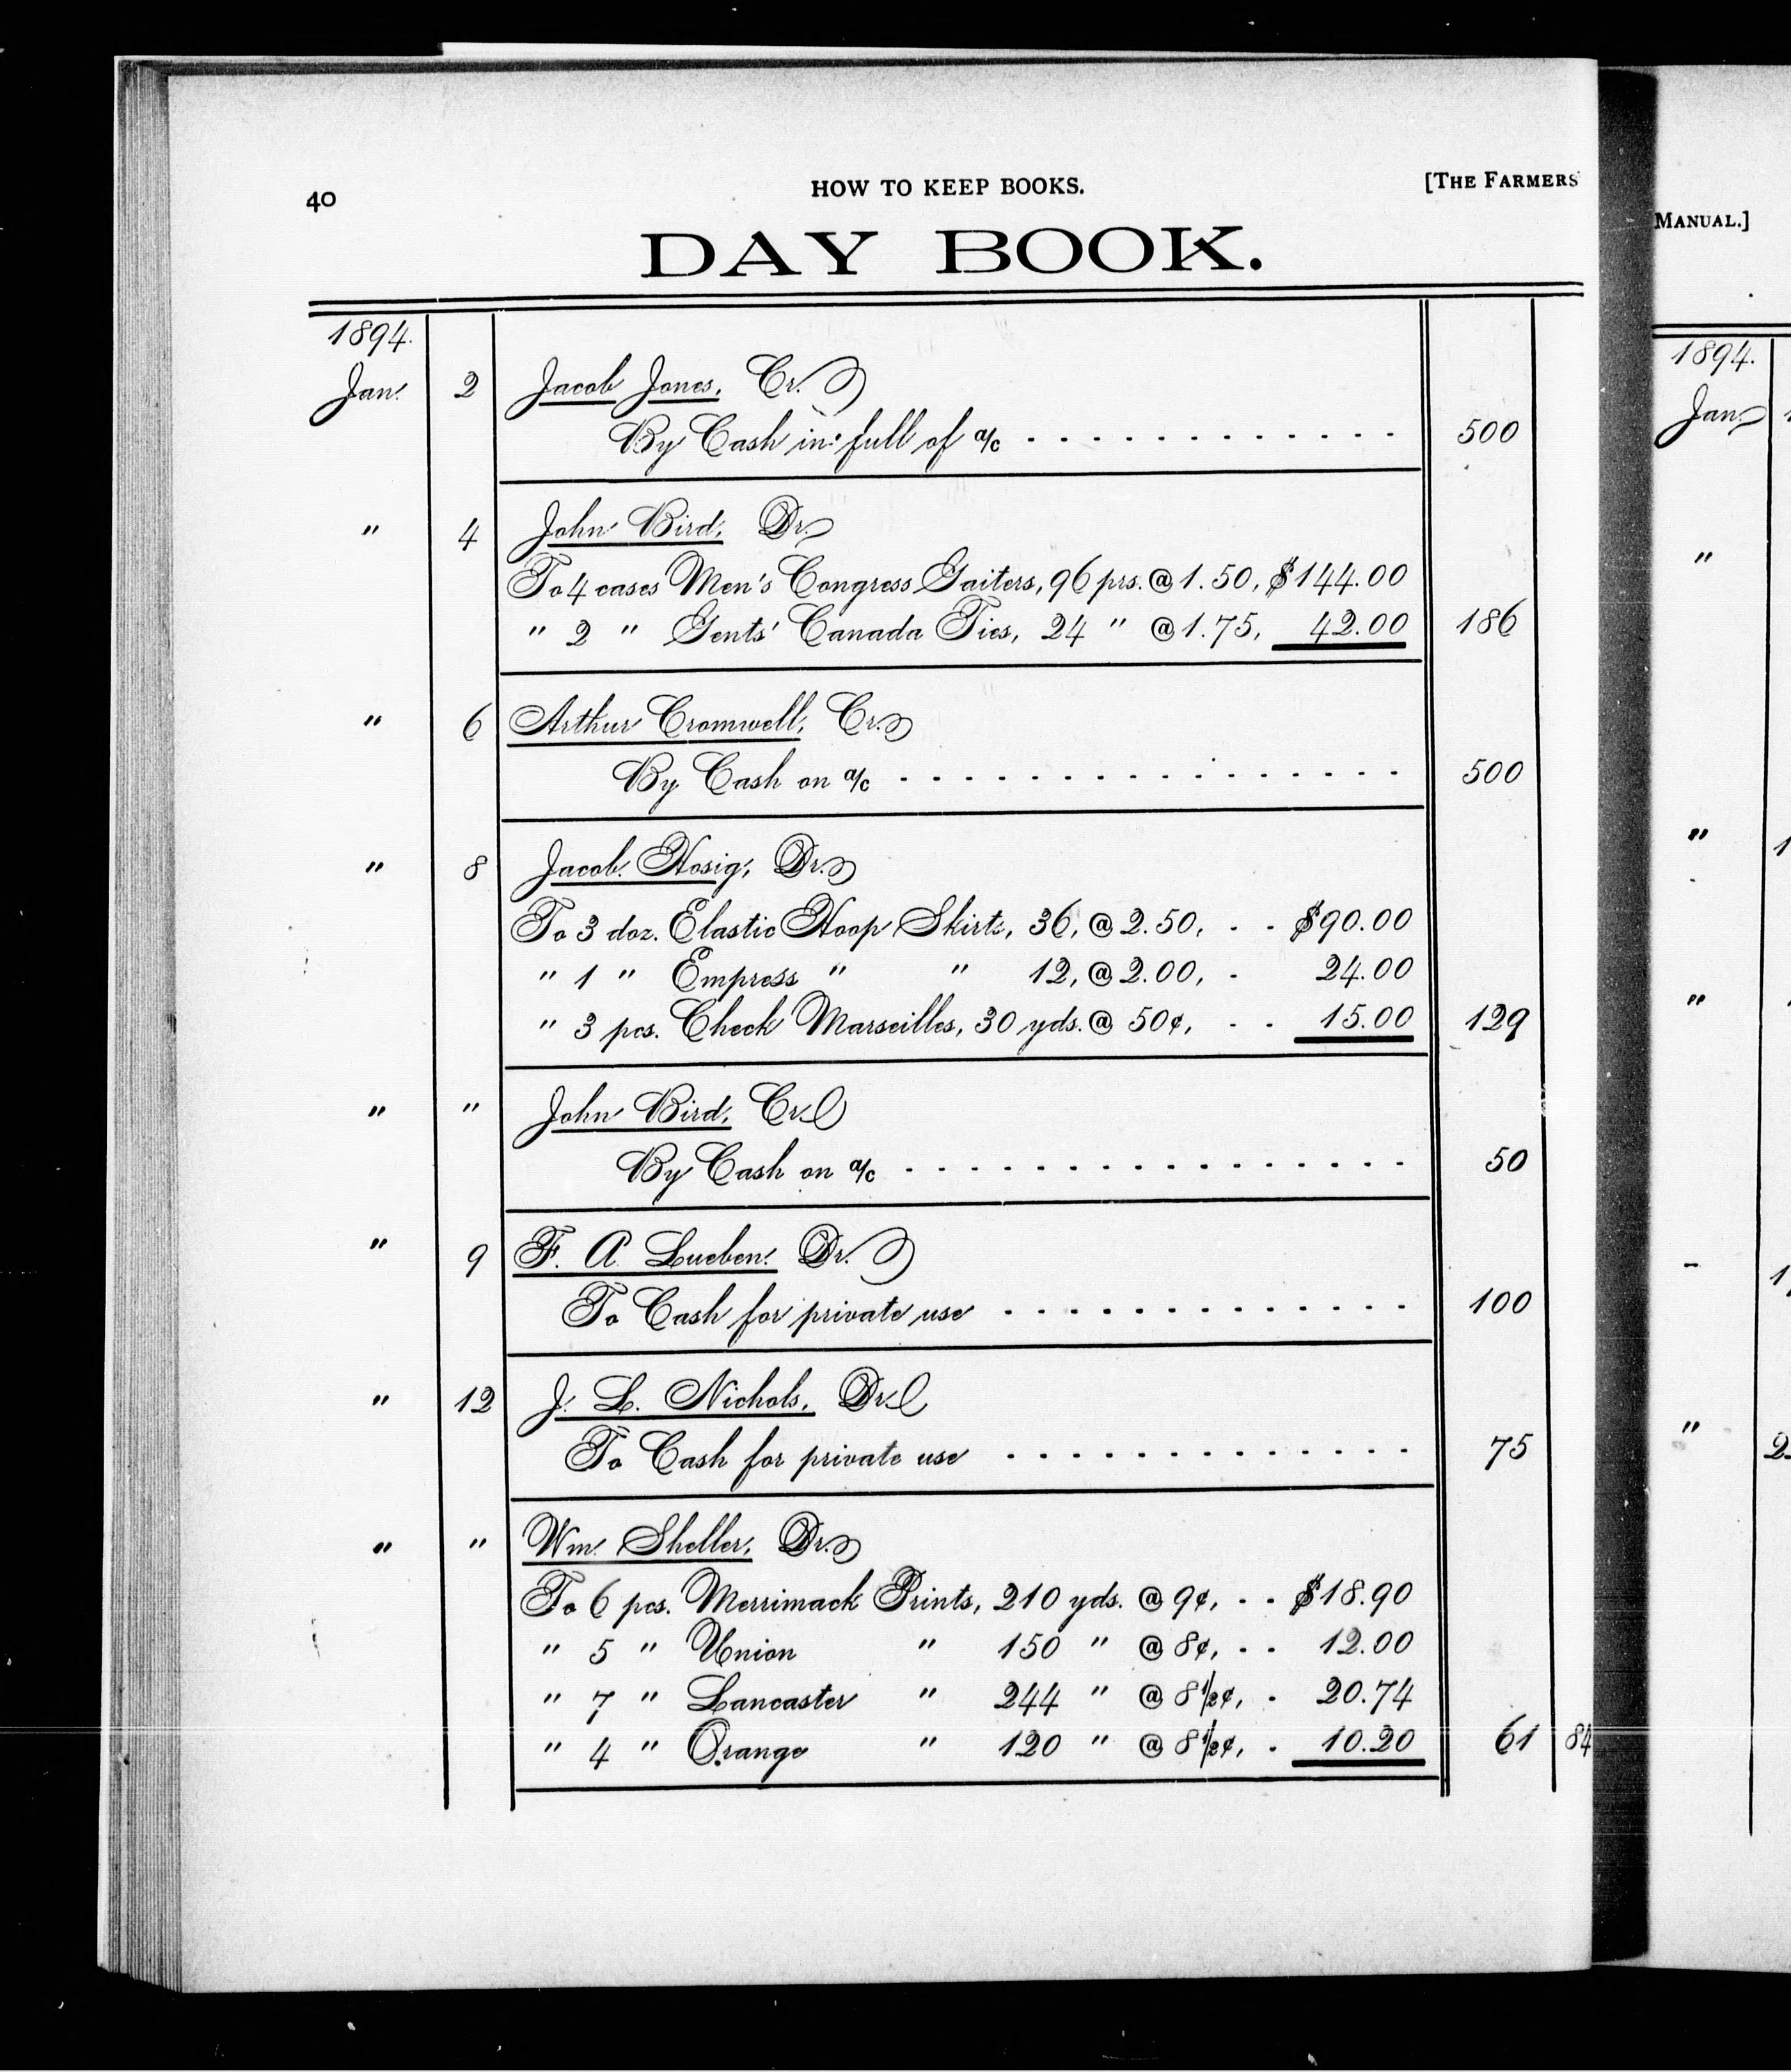 40
HOW TO KEEP BOOKS.
[THE FARMERS'
DAY BOOK.
1894.
Jan. 2 Jacob Jones, Cr.
By Cash in full of a/c 500
" 4 John Bird, Dr.
To 4 cases Men's Congress Gaiters, 96 prs. @ 1.50, $144.00
" 2 " Gents' Canada Ties, 24 " @ 1.75, 42.00 186
" 6 Arthur Cromwell, Cr.
By Cash on a/c 500
" 8 Jacob Hosig, Dr.
To 3 doz. Elastic Hoop Skirts, 36, @ 2.50, $90.00
" 1 " Empress " " 12, @ 2.00, 24.00
" 3 pcs. Check Marseilles, 30 yds. @ 50¢, 15.00 129
" " John Bird, Cr.
By Cash on a/c 50
" 9 F. A. Lueben. Dr.
To Cash for private use 100
" 12 J. L. Nichols, Dr.
To Cash for private use 75
" " Wm. Sheller, Dr.
To 6 pcs. Merrimack Prints, 210 yds. @ 9¢, $18.90
" 5 " Union " 150 " @ 8¢, 12.00
" 7 " Lancaster " 244 " @ 8½¢, 20.74
" 4 " Orange " 120 " @ 8½¢, 10.20 61 84
MANUAL.]
1894.
Jan.
"
" 1
"
1
" 2